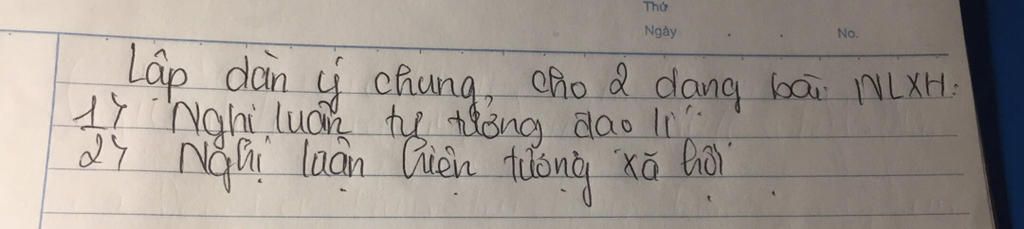 Thứ
Ngày . . No.
Lập dàn ý chung, cho 2 dạng bài NLXH:
1) Nghị luận tư tưởng đạo lí
2) Nghị luận hiện tượng xã hội